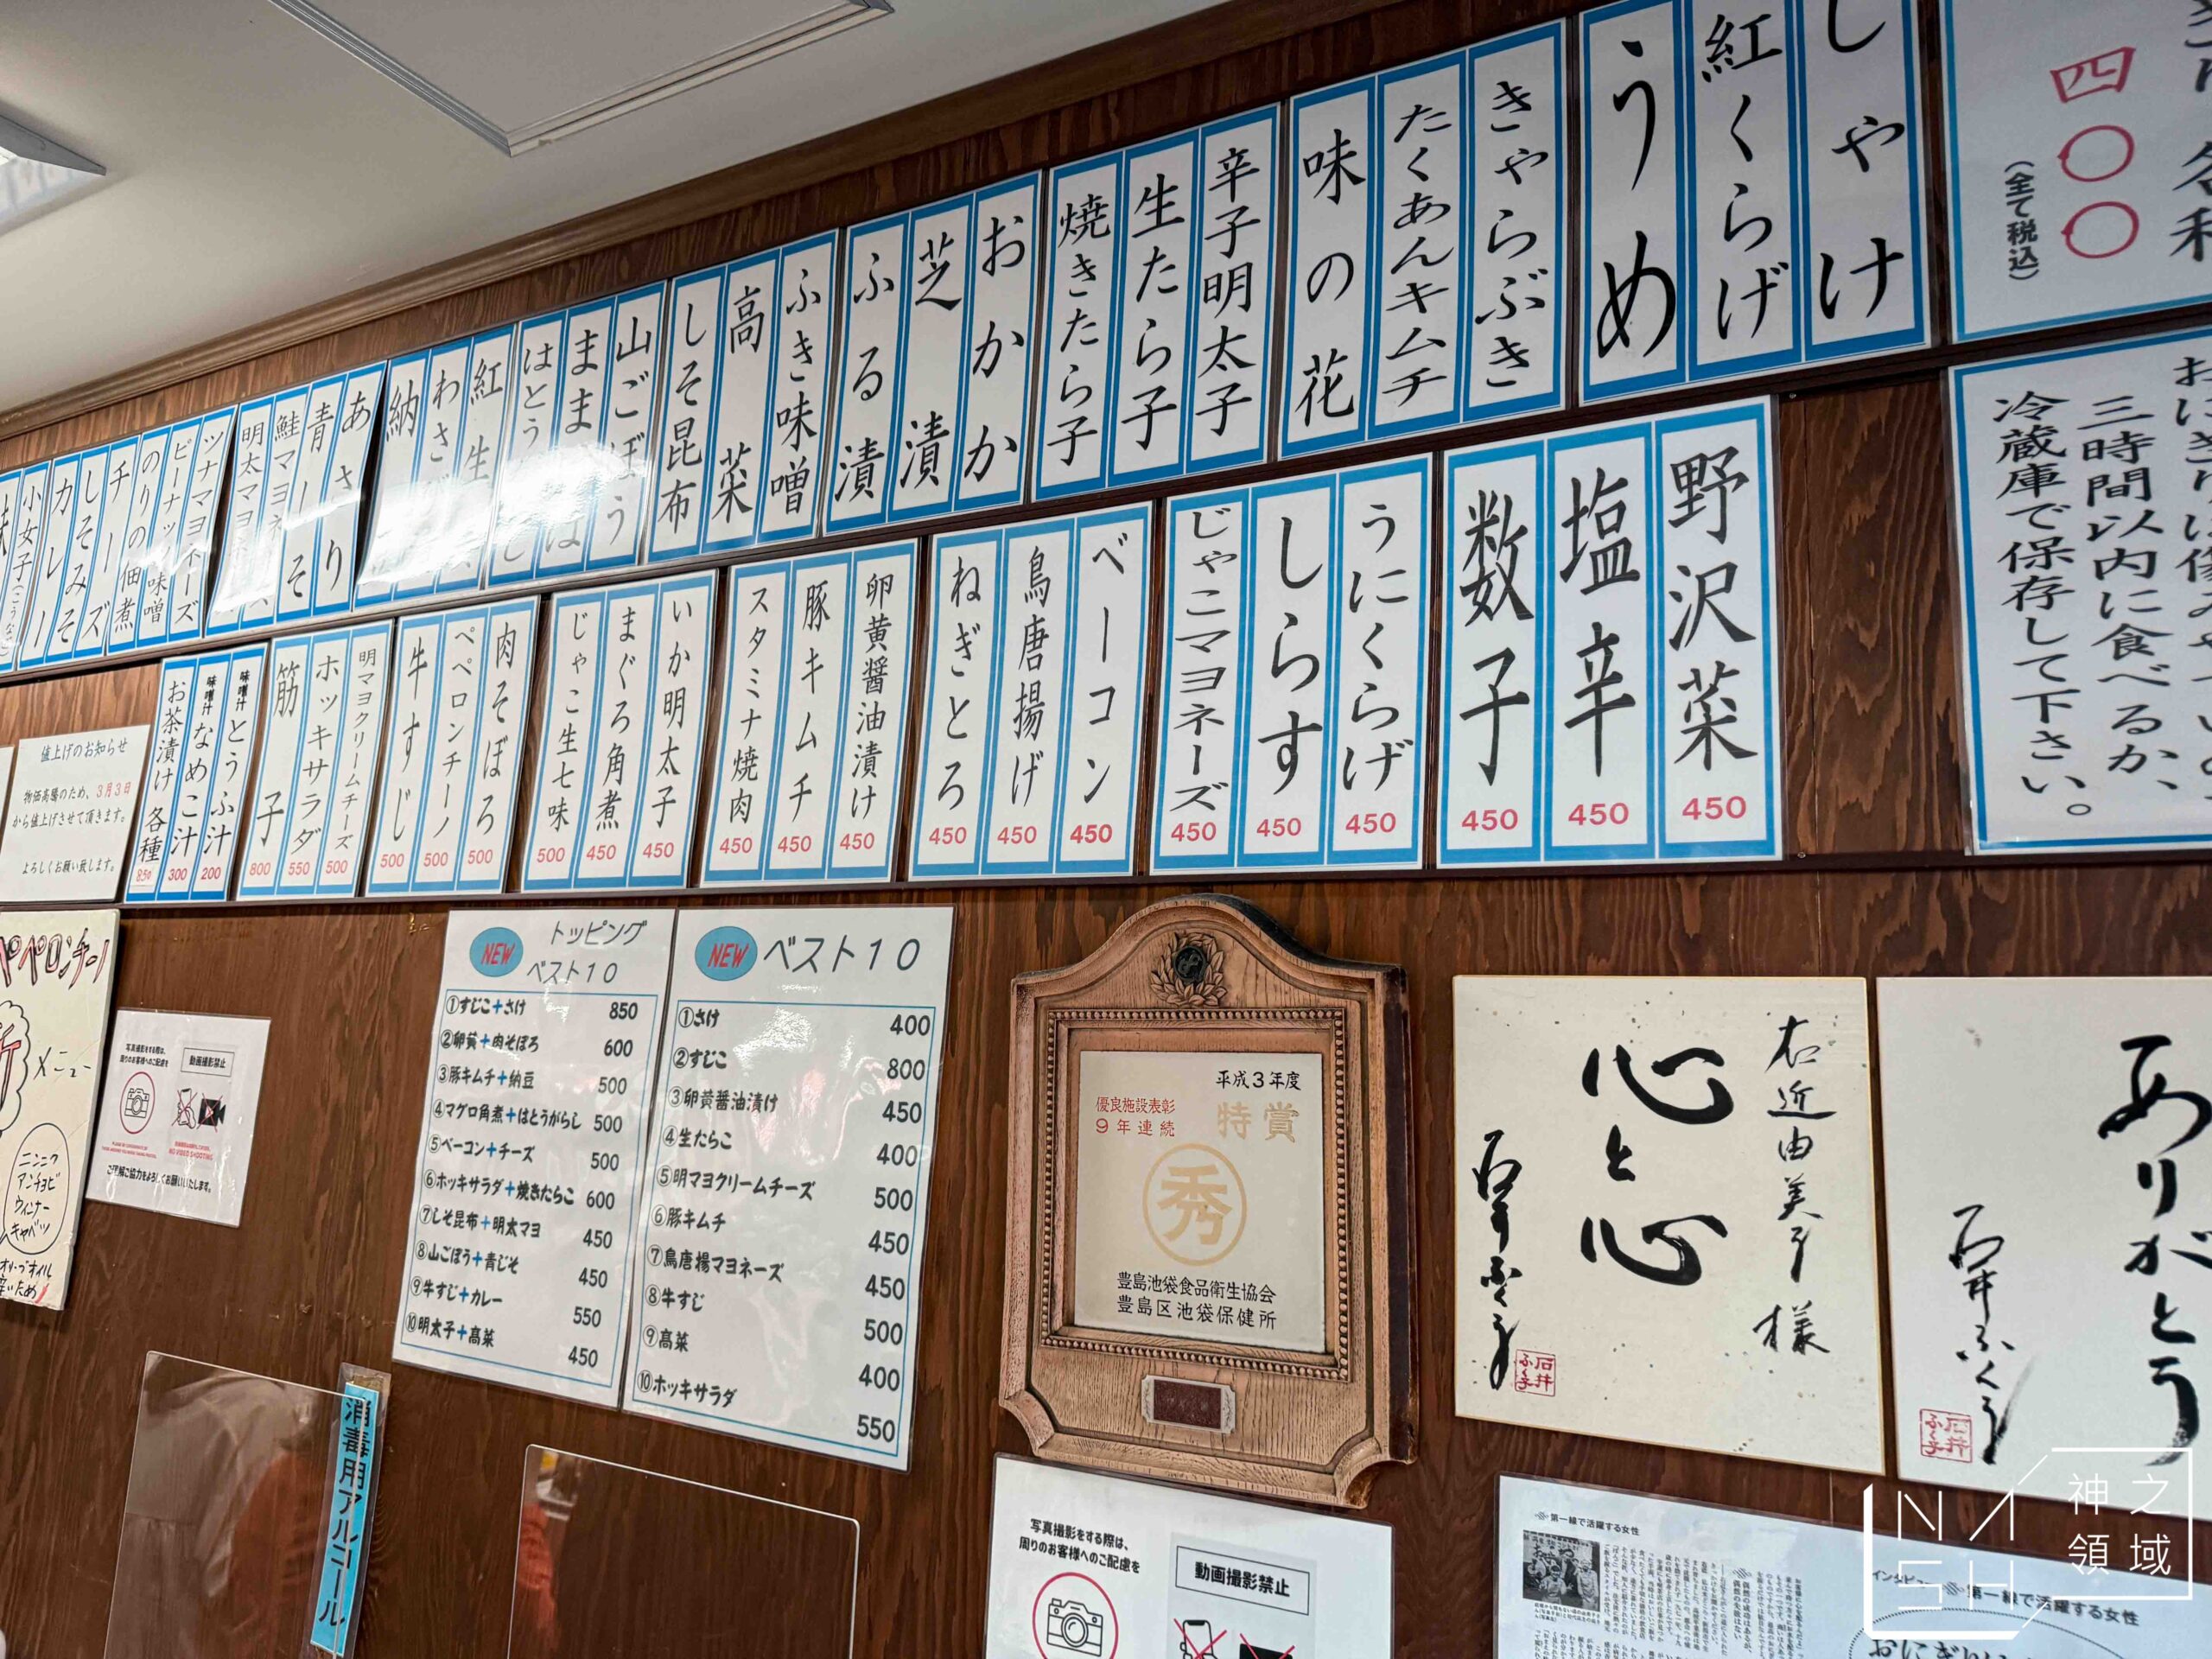 四〇〇
(全て税込)
しゃけ
紅くらげ
うめ
きゃらぶき
たくあんキムチ
味の花
辛子明太子
生たら子
焼きたら子
おかか
芝漬
ふる漬
ふき味噌
高菜
しそ昆布
山ごぼう
紅生
あさり
青じそ
鮭マヨネ
明太マヨネ
ツナマヨネーズ
ピーナッツ味噌
のりの佃煮
チーズ
しそみそ
カレー
小女子(こうなご)
三時間以内に食べるか、
冷蔵庫で保存して下さい。
野沢菜 450
塩辛 450
数子 450
うにくらげ 450
しらす 450
じゃこマヨネーズ 450
ベーコン 450
鳥唐揚げ 450
ねぎとろ 450
卵黄醤油漬け 450
豚キムチ 450
スタミナ焼肉 450
いか明太子 450
まぐろ角煮 450
じゃこ生七味 500
肉そぼろ 500
ペペロンチーノ 500
牛すじ 500
明マヨクリームチーズ 500
ホッキサラダ 550
筋子 800
味噌汁 とうふ汁 200
味噌汁 なめこ汁 300
お茶漬け 各種 850
値上げのお知らせ
物価高騰のため、3月3日
から値上げさせて頂きます。
よろしくお願い致します。
ペペロンチーノ
メニュー
ニンニク
アンチョビ
ウィンナー
キャベツ
写真撮影をする際は、
周りのお客様へのご配慮を
動画撮影禁止
NO VIDEO SHOOTING
ご理解ご協力をよろしくお願いいたします。
NEW トッピング
ベスト10
①すじこ+さけ 850
②卵黄+肉そぼろ 600
③豚キムチ+納豆 500
④マグロ角煮+はとうがらし 500
⑤ベーコン+チーズ 500
⑥ホッキサラダ+焼きたらこ 600
⑦しそ昆布+明太マヨ 450
⑧山ごぼう+青じそ 450
⑨牛すじ+カレー 550
⑩明太子+高菜 450
NEW ベスト10
①さけ 400
②すじこ 800
③卵黄醤油漬け 450
④生たらこ 400
⑤明マヨクリームチーズ 500
⑥豚キムチ 450
⑦鳥唐揚マヨネーズ 450
⑧牛すじ 500
⑨高菜 400
⑩ホッキサラダ 550
平成3年度
優良施設表彰
9年連続
特賞
秀
豊島池袋食品衛生協会
豊島区池袋保健所
右近由美子様
心と心
石井ふく子
ありがとう
石井ふく子
消毒用アルコール
写真撮影をする際は、
周りのお客様へのご配慮を
動画撮影禁止
第一線で活躍する女性
インタビュー 第一線で活躍する女性
NASH
神之
領域